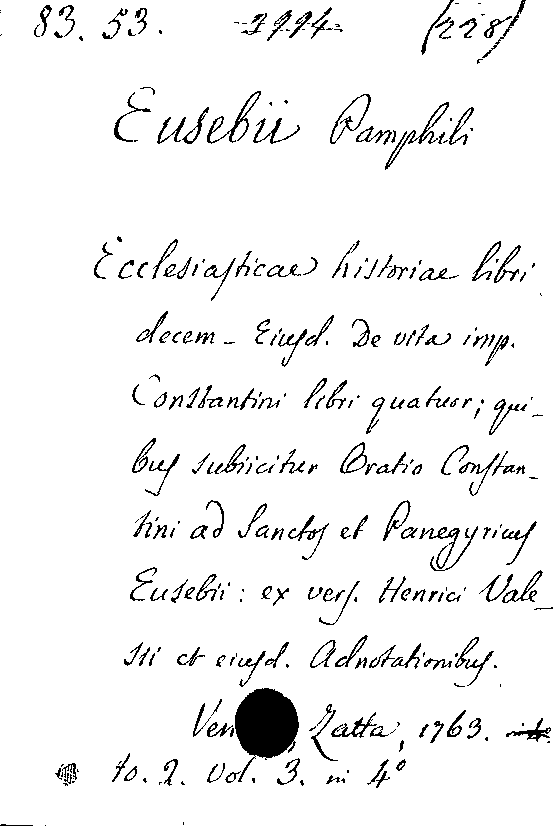 83. 53. 2994 (228)
Eusebii Pamphili
Ecclesiasticae historiae libri
decem - Eiusd. De vita imp.
Constantini libri quatuor; qui-
bus subiicitur Oratio Constan-
tini ad Sanctos et Panegyricus
Eusebii: ex vers. Henrici Vale-
sii et eiusd. Adnotationibus.
Ven , Zatta, 1763.
to. 2. vol. 3. in 4°